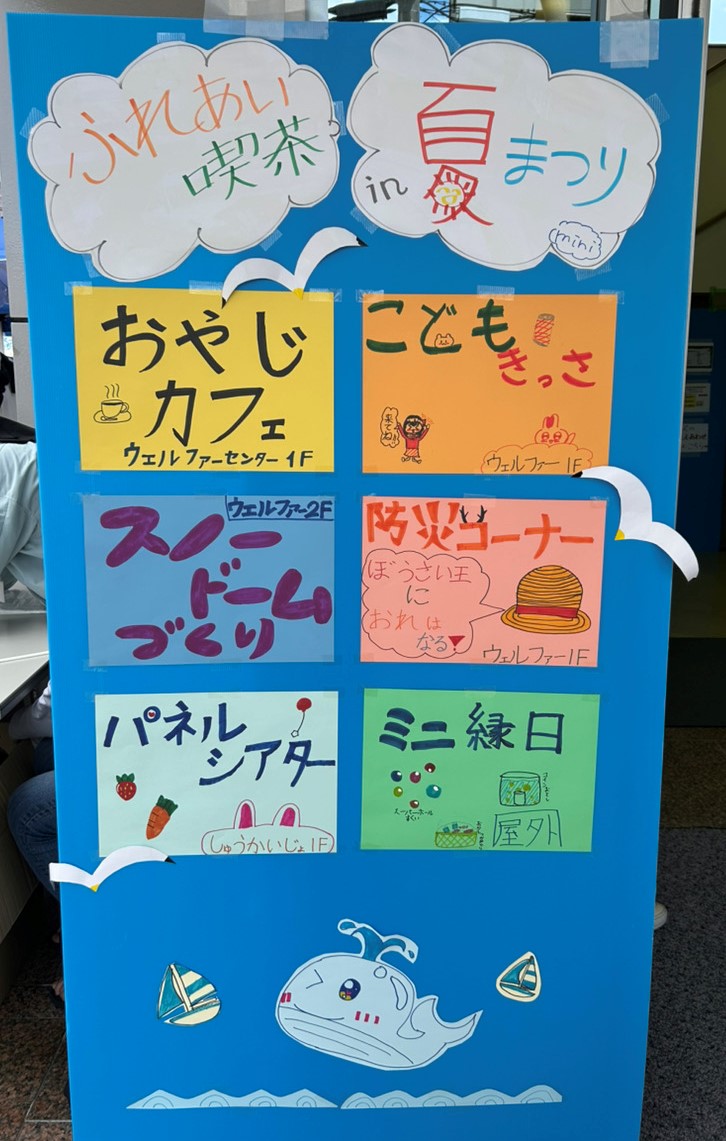 ふれあい
喫茶
in 夏まつり
mini
おやじ
カフェ
ウェルファーセンター1F
こども
きっさ
来てね!!
ウェルファー1F
ウェルファー2F
スノー
ドーム
づくり
防災コーナー
ぼうさい王
に
おれは
なる
ウェルファー1F
パネル
シアター
しゅうかいじょ1F
ミニ縁日
スーパーボール
すくい
屋外